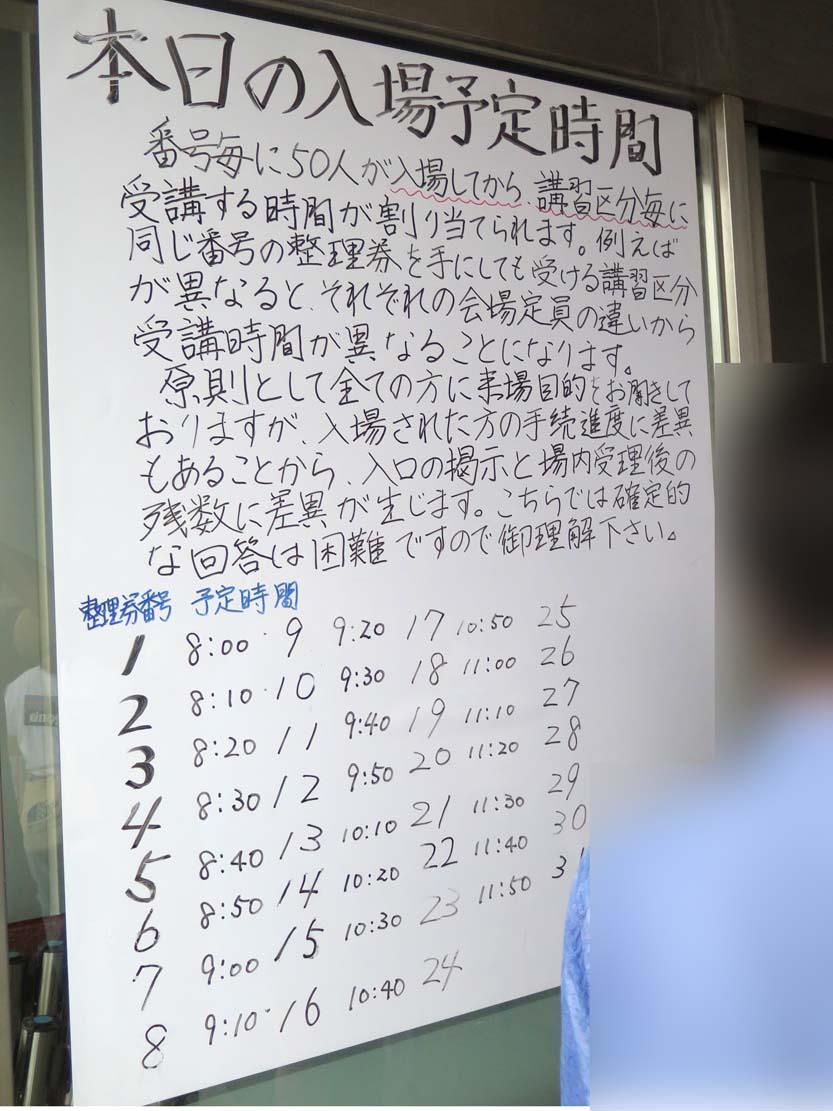 本日の入場予定時間
番号毎に50人が入場してから、講習区分毎に
受講する時間が割り当てられます。例えば
同じ番号の整理券を手にしても受ける講習区分
が異なると、それぞれの会場定員の違いから
受講時間が異なることになります。
原則として全ての方に来場目的をお聞きして
おりますが、入場された方の手続進度に差異
もあることから、入口の掲示と場内受理後の
残数に差異が生じます。こちらでは確定的
な回答は困難ですので御理解下さい。
整理券番号 予定時間
1 8:00 9 9:20 17 10:50 25
2 8:10 10 9:30 18 11:00 26
3 8:20 11 9:40 19 11:10 27
4 8:30 12 9:50 20 11:20 28
5 8:40 13 10:10 21 11:30 29
6 8:50 14 10:20 22 11:40 30
7 9:00 15 10:30 23 11:50 31
8 9:10 16 10:40 24